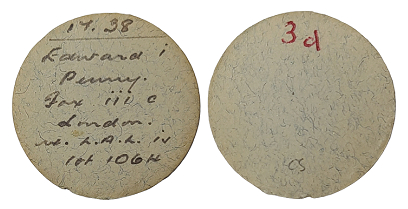 17. 38
Edward i
Penny.
Fox iii c
London.
ex. L.A.L. iv
lot 106H
3d
CS